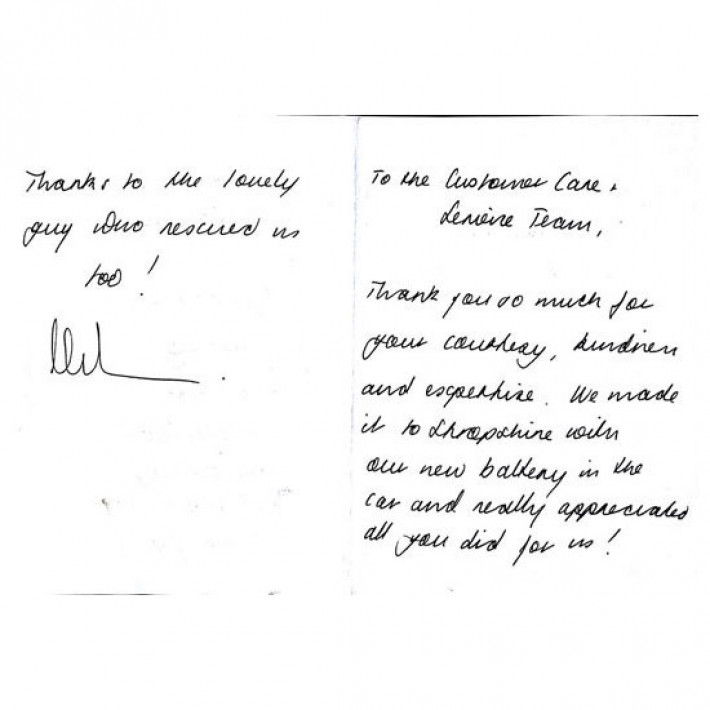 Thanks to the lovely
guy who rescued us
too!
To the Customer Care &
Service Team,
Thank you so much for
your courtesy, kindness
and expertise. We made
it to Shropshire with
our new battery in the
car and really appreciated
all you did for us!